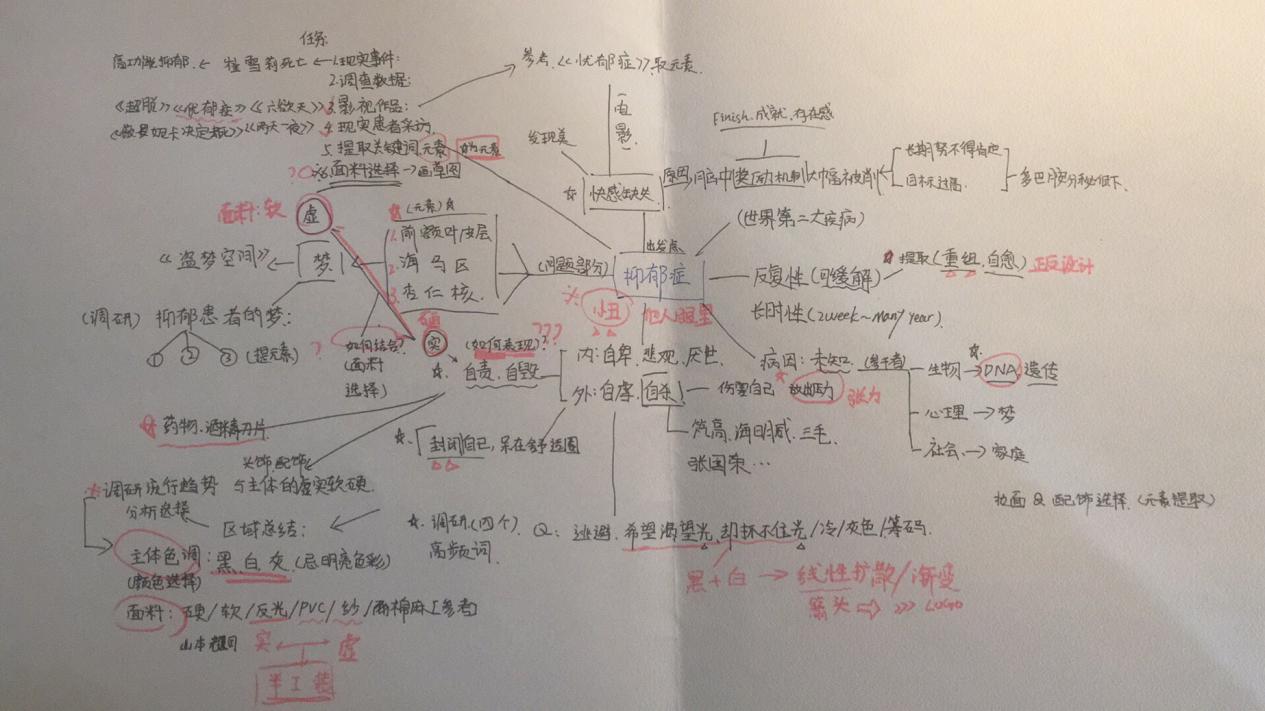 任务:
高功能抑郁. ← 拉雪莉死亡 ← 1.现实事件:
2.调查数据:
《超脱》《忧郁症》《六欲天》3.影视作品:
《两天一夜》 4.现实患者采访,
5.提取关键词元素
6.面料选择→画草图
参考.《忧郁症》取元素.
(电影)
发现美
☆ 快感缺失
Finish.成就,存在感
奖励机制
长期努不得肯定
目标过高.
多巴胺分泌低下.
面料:软
虚
☆(元素)☆
1.前额叶皮层
2.海马区
3.杏仁核.
《盗梦空间》← 梦.
(问题部分)
出发点
抑郁症
(世界第二大疾病)
反复性(可缓解)
提取(重组,自愈) 正反设计
长时性(2week~many year).
小丑
他人眼里
(调研) 抑郁患者的梦:
① ② ③ (提元素)
?
如何结合?
(面料
选择)
硬
实
(如何表现)? ???
☆. 自责,自毁
内:自卑,悲观,厌世.
外:自虐,自杀 — 伤害自己
张力
病因:未知. (参与者)
生物→DNA,遗传
心理→梦
社会.→家庭
☆ 药物.酒精刀片.
☆. 封闭自己,呆在舒适圈
梵高.海明威.三毛.
张国荣…
头饰,配饰
与主体的虚实软硬.
☆调研流行趋势
分析选择
区域总结:
☆. 调研(四个)
高频词.
Q: 逃避.希望渴望光,却抓不住光/冷/灰色/筹码.
Q 配饰选择.(元素提取)
主体色调: 黑.白.灰.(忌明亮色彩)
(颜色选择)
黑+白 → 线性扩散/渐变
箭头 ⇨ >>> LOGO
面料: 硬/软/反光/PVC/纱/雨棉麻[参考]
实 ←→ 虚
半工装